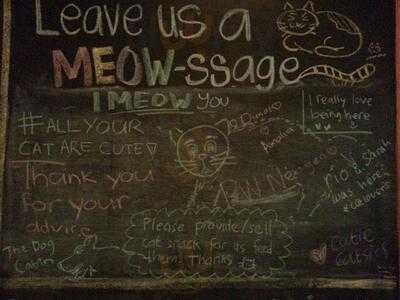 Leave us a
MEOW-ssage
I MEOW YOU
I really love
being here
#ALL YOUR
CAT ARE CUTE
Thank you
for your
advice
The Dog
Please provide/sell
cat snack for its feed
them! Thanks
rio & Sarah
was here
Catie